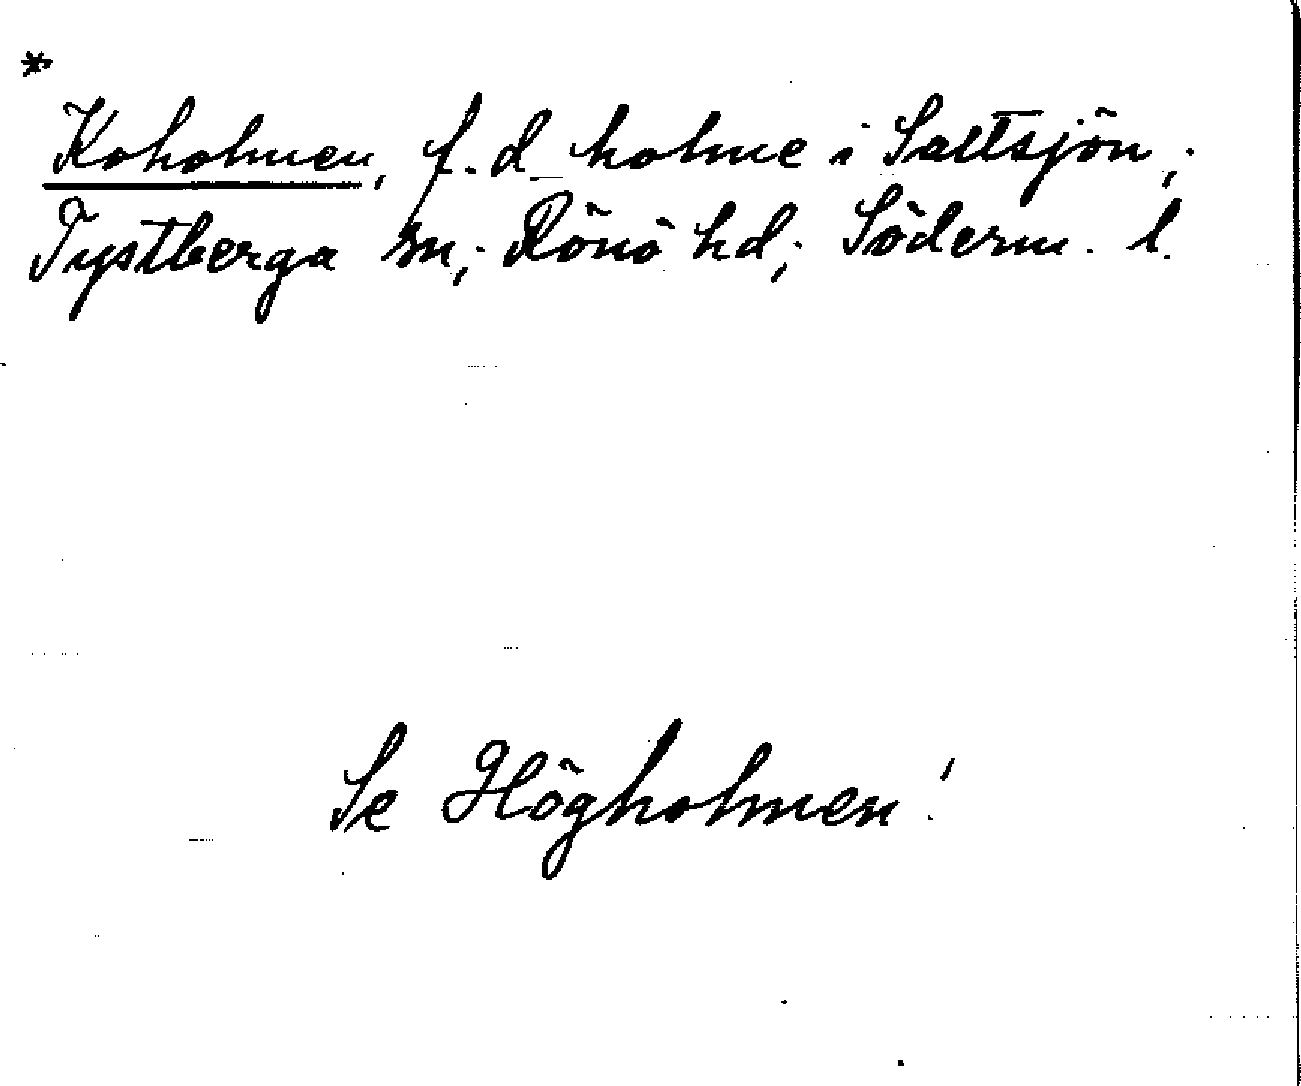 *
Koholmen, f.d. holme i Saltsjön;
Tystberga sn; Rönö hd; Söderm. l.
Se Högholmen!